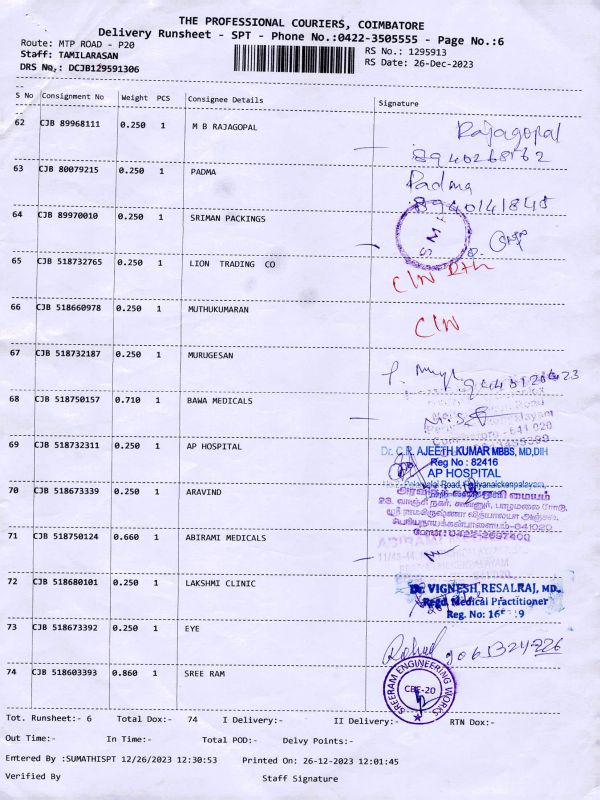 THE PROFESSIONAL COURIERS, COIMBATORE
Delivery Runsheet - SPT - Phone No.:0422-3505555 - Page No.:6
Route: MTP ROAD - P20
RS No.: 1295913
Staff: TAMILARASAN
RS Date: 26-Dec-2023
DRS No.: DCJB129591306
S No Consignment No Weight PCS Consignee Details Signature
62 CJB 89968111 0.250 1 M B RAJAGOPAL Rajagopal
8940268562
63 CJB 80079215 0.250 1 PADMA Padma
8940141845
64 CJB 89970010 0.250 1 SRIMAN PACKINGS
65 CJB 518732765 0.250 1 LION TRADING CO C/N
66 CJB 518660978 0.250 1 MUTHUKUMARAN C/N
67 CJB 518732187 0.250 1 MURUGESAN
68 CJB 518750157 0.710 1 BAWA MEDICALS
69 CJB 518732311 0.250 1 AP HOSPITAL Dr. C.R. AJEETH KUMAR MBBS, MD,DIH
Reg No : 82416
AP HOSPITAL
70 CJB 518673339 0.250 1 ARAVIND
71 CJB 518750124 0.660 1 ABIRAMI MEDICALS
72 CJB 518680101 0.250 1 LAKSHMI CLINIC Dr. VIGNESH RESALRAJ, MD.,
Regd. Medical Practitioner
Reg. No:
73 CJB 518673392 0.250 1 EYE
74 CJB 518603393 0.860 1 SREE RAM SREERAM ENGINEERING WORKS
CBE-20
Tot. Runsheet:- 6 Total Dox:- 74 I Delivery:- II Delivery:- RTN Dox:-
Out Time:- In Time:- Total POD:- Delvy Points:-
Entered By :SUMATHISPT 12/26/2023 12:30:53 Printed On: 26-12-2023 12:01:45
Verified By Staff Signature